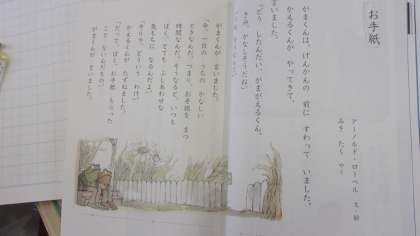 お手紙
アーノルド・ローベル 文・絵
みき たく やく
がまくんは、げんかんの 前に すわって いました。
かえるくんが やってきて、
言いました。
「どう したんだい、がまがえるくん。
きみ、かなしそうだね。」
がまくんが 言いました。
「今、一日の うちの かなしい
時なんだ。つまり、お手紙を まつ
時間なんだ。そうなると、いつも
ぼく、とても ふしあわせな
気もちに なるんだよ。」
「そりゃ、どういう わけ。」
かえるくんが たずねました。
「だって、ぼく、お手紙 もらった
こと ないんだもの。」
がまくんが 言いました。